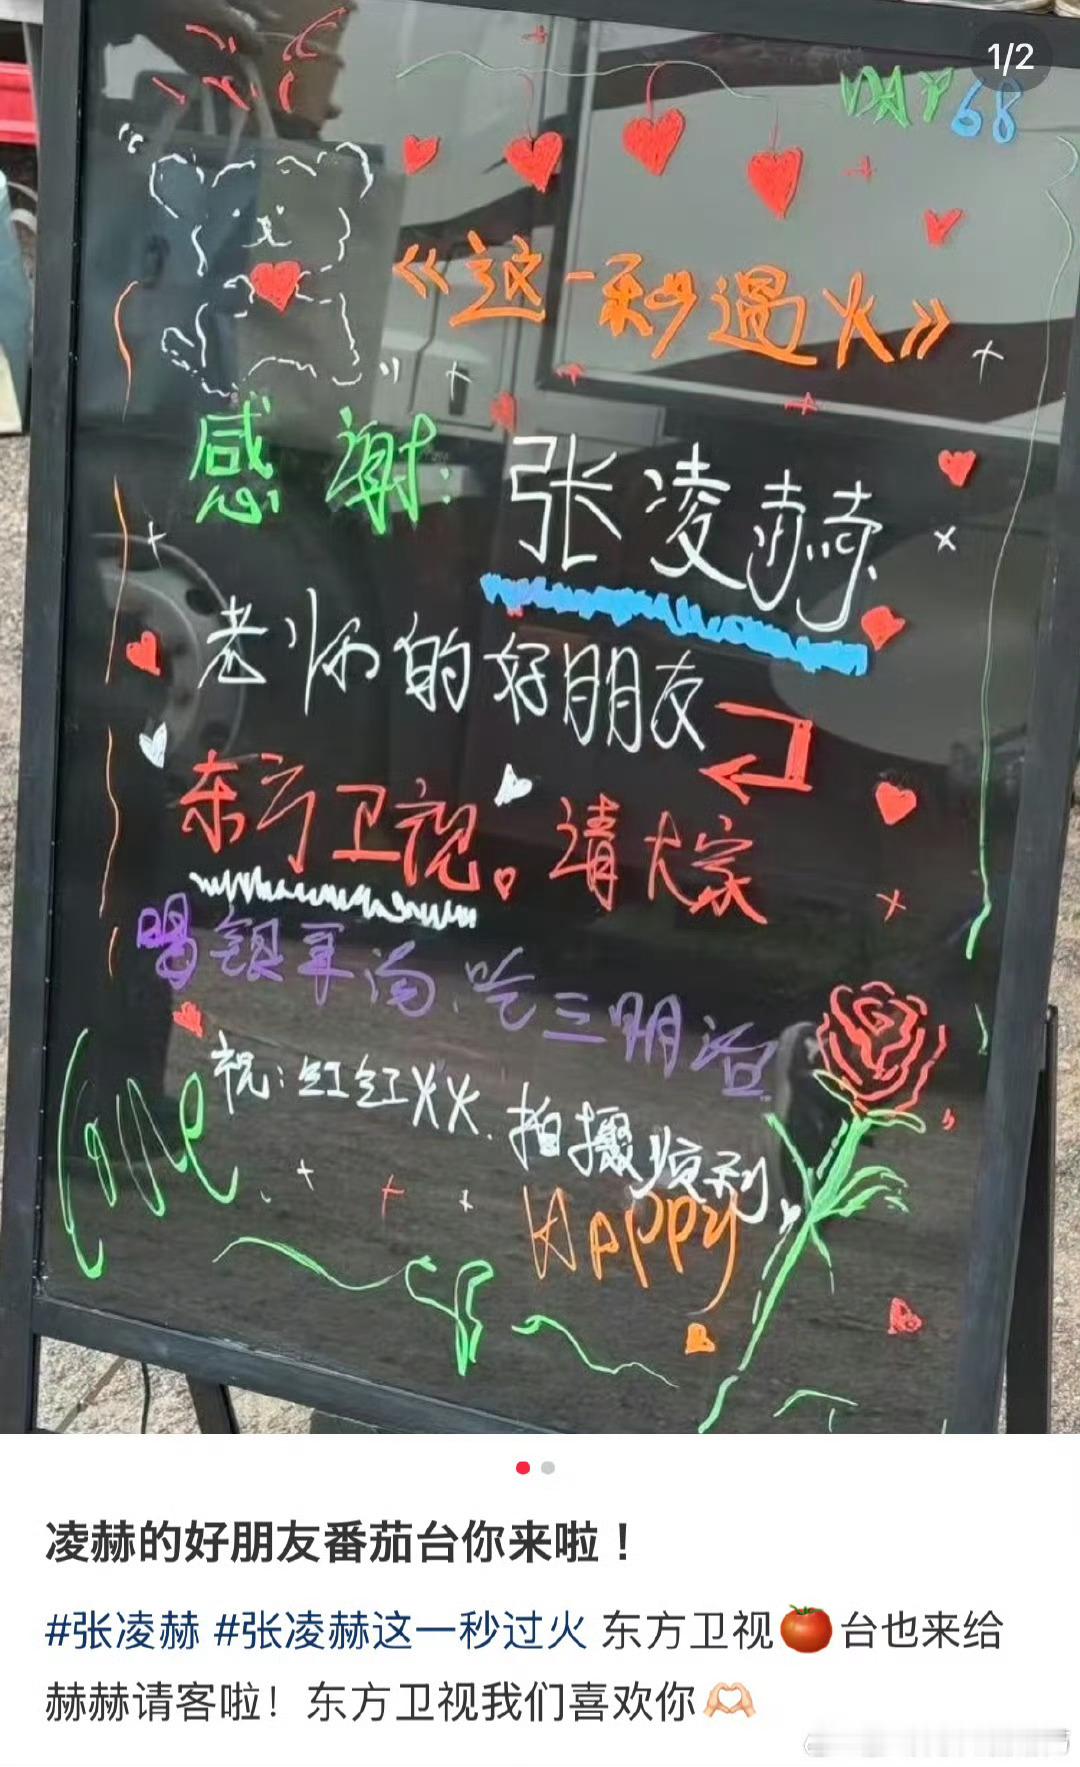 1/2
DAY 68
《这一秒过火》
感谢：张凌赫
老师的好朋友
东方卫视。请大家
喝银耳汤、吃三明治
祝：红红火火.拍摄顺利
Love
Happy
凌赫的好朋友番茄台你来啦！
#张凌赫 #张凌赫这一秒过火 东方卫视🍅台也来给
赫赫请客啦！东方卫视我们喜欢你🫶🏻